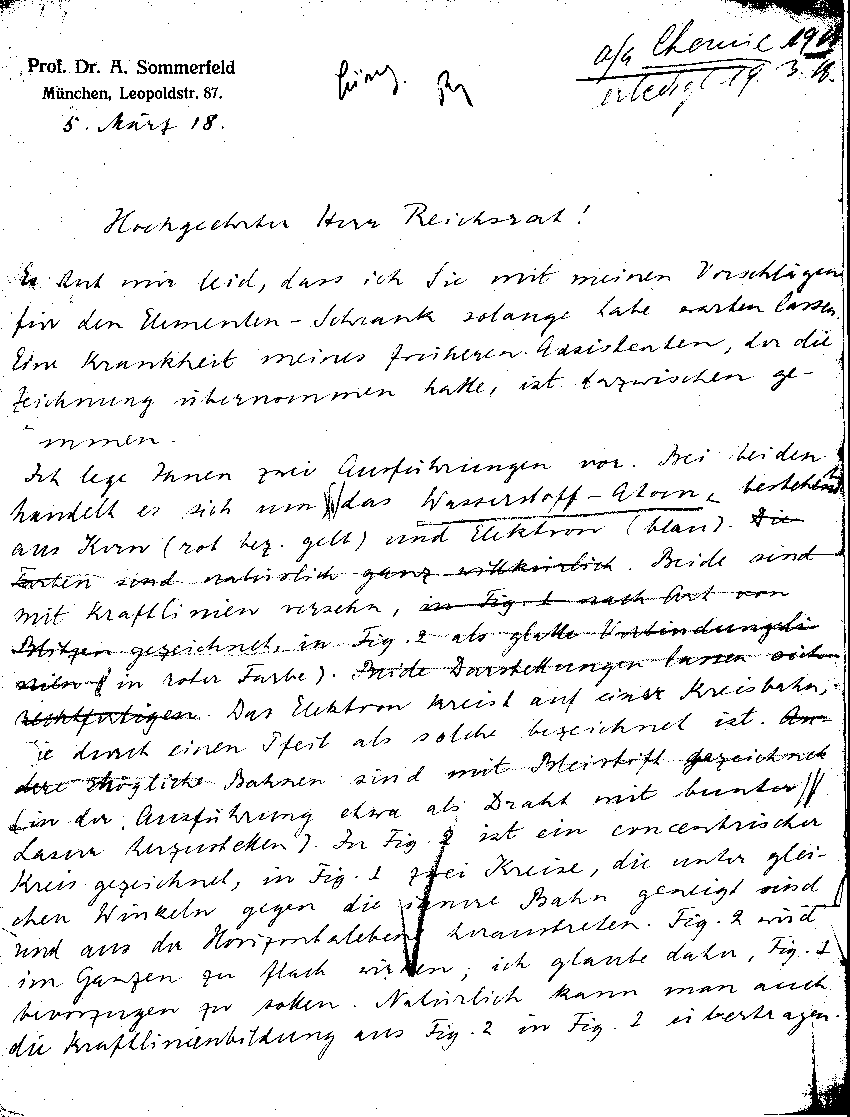 Prof. Dr. A. Sommerfeld
München, Leopoldstr. 87.
5. März 18.
a/a Chemie
erledigt 19. 3. 18.
Hochgeehrter Herr Reichsrat!
Es thut mir leid, dass ich Sie mit meinen Vorschlägen
für den Elementen-Schrank solange habe warten lassen.
Eine Krankheit meines früheren Assistenten, der die
Zeichnung übernommen hatte, ist dazwischen ge-
mmen.
Ich lege Ihnen zwei Ausführungen vor. Bei beiden
handelt es sich um das Wasserstoff-Atom, bestehend
aus Kern (rot bez. gelb) und Elektron (blau). Die
Farben sind natürlich ganz willkürlich. Beide sind
mit Kraftlinien versehn, in Fig. 1 nach Art von
Blitzen gezeichnet, in Fig. 2 als glatte Verbindungsli-
nien (in roter Farbe). Beide Darstellungen lassen sich
rechtfertigen. Das Elektron kreist auf einer Kreisbahn,
ie durch einen Pfeil als solche bezeichnet ist. An-
dere mögliche Bahnen sind mit Bleistift gezeichnet
(in der Ausführung etwa als Draht mit bunter
Lasur herzustellen). In Fig. 2 ist ein concentrischer
Kreis gezeichnet, in Fig. 1 zwei Kreise, die unter glei-
chen Winkeln gegen die innere Bahn geneigt sind
und aus der Horizontalebene heraustreten. Fig. 2 wird
im Ganzen zu flach wirken; ich glaube daher, Fig. 1
bevorzugen zu sollen. Natürlich kann man auch
die Kraftlinienbildung aus Fig. 2 in Fig. 1 übertragen.